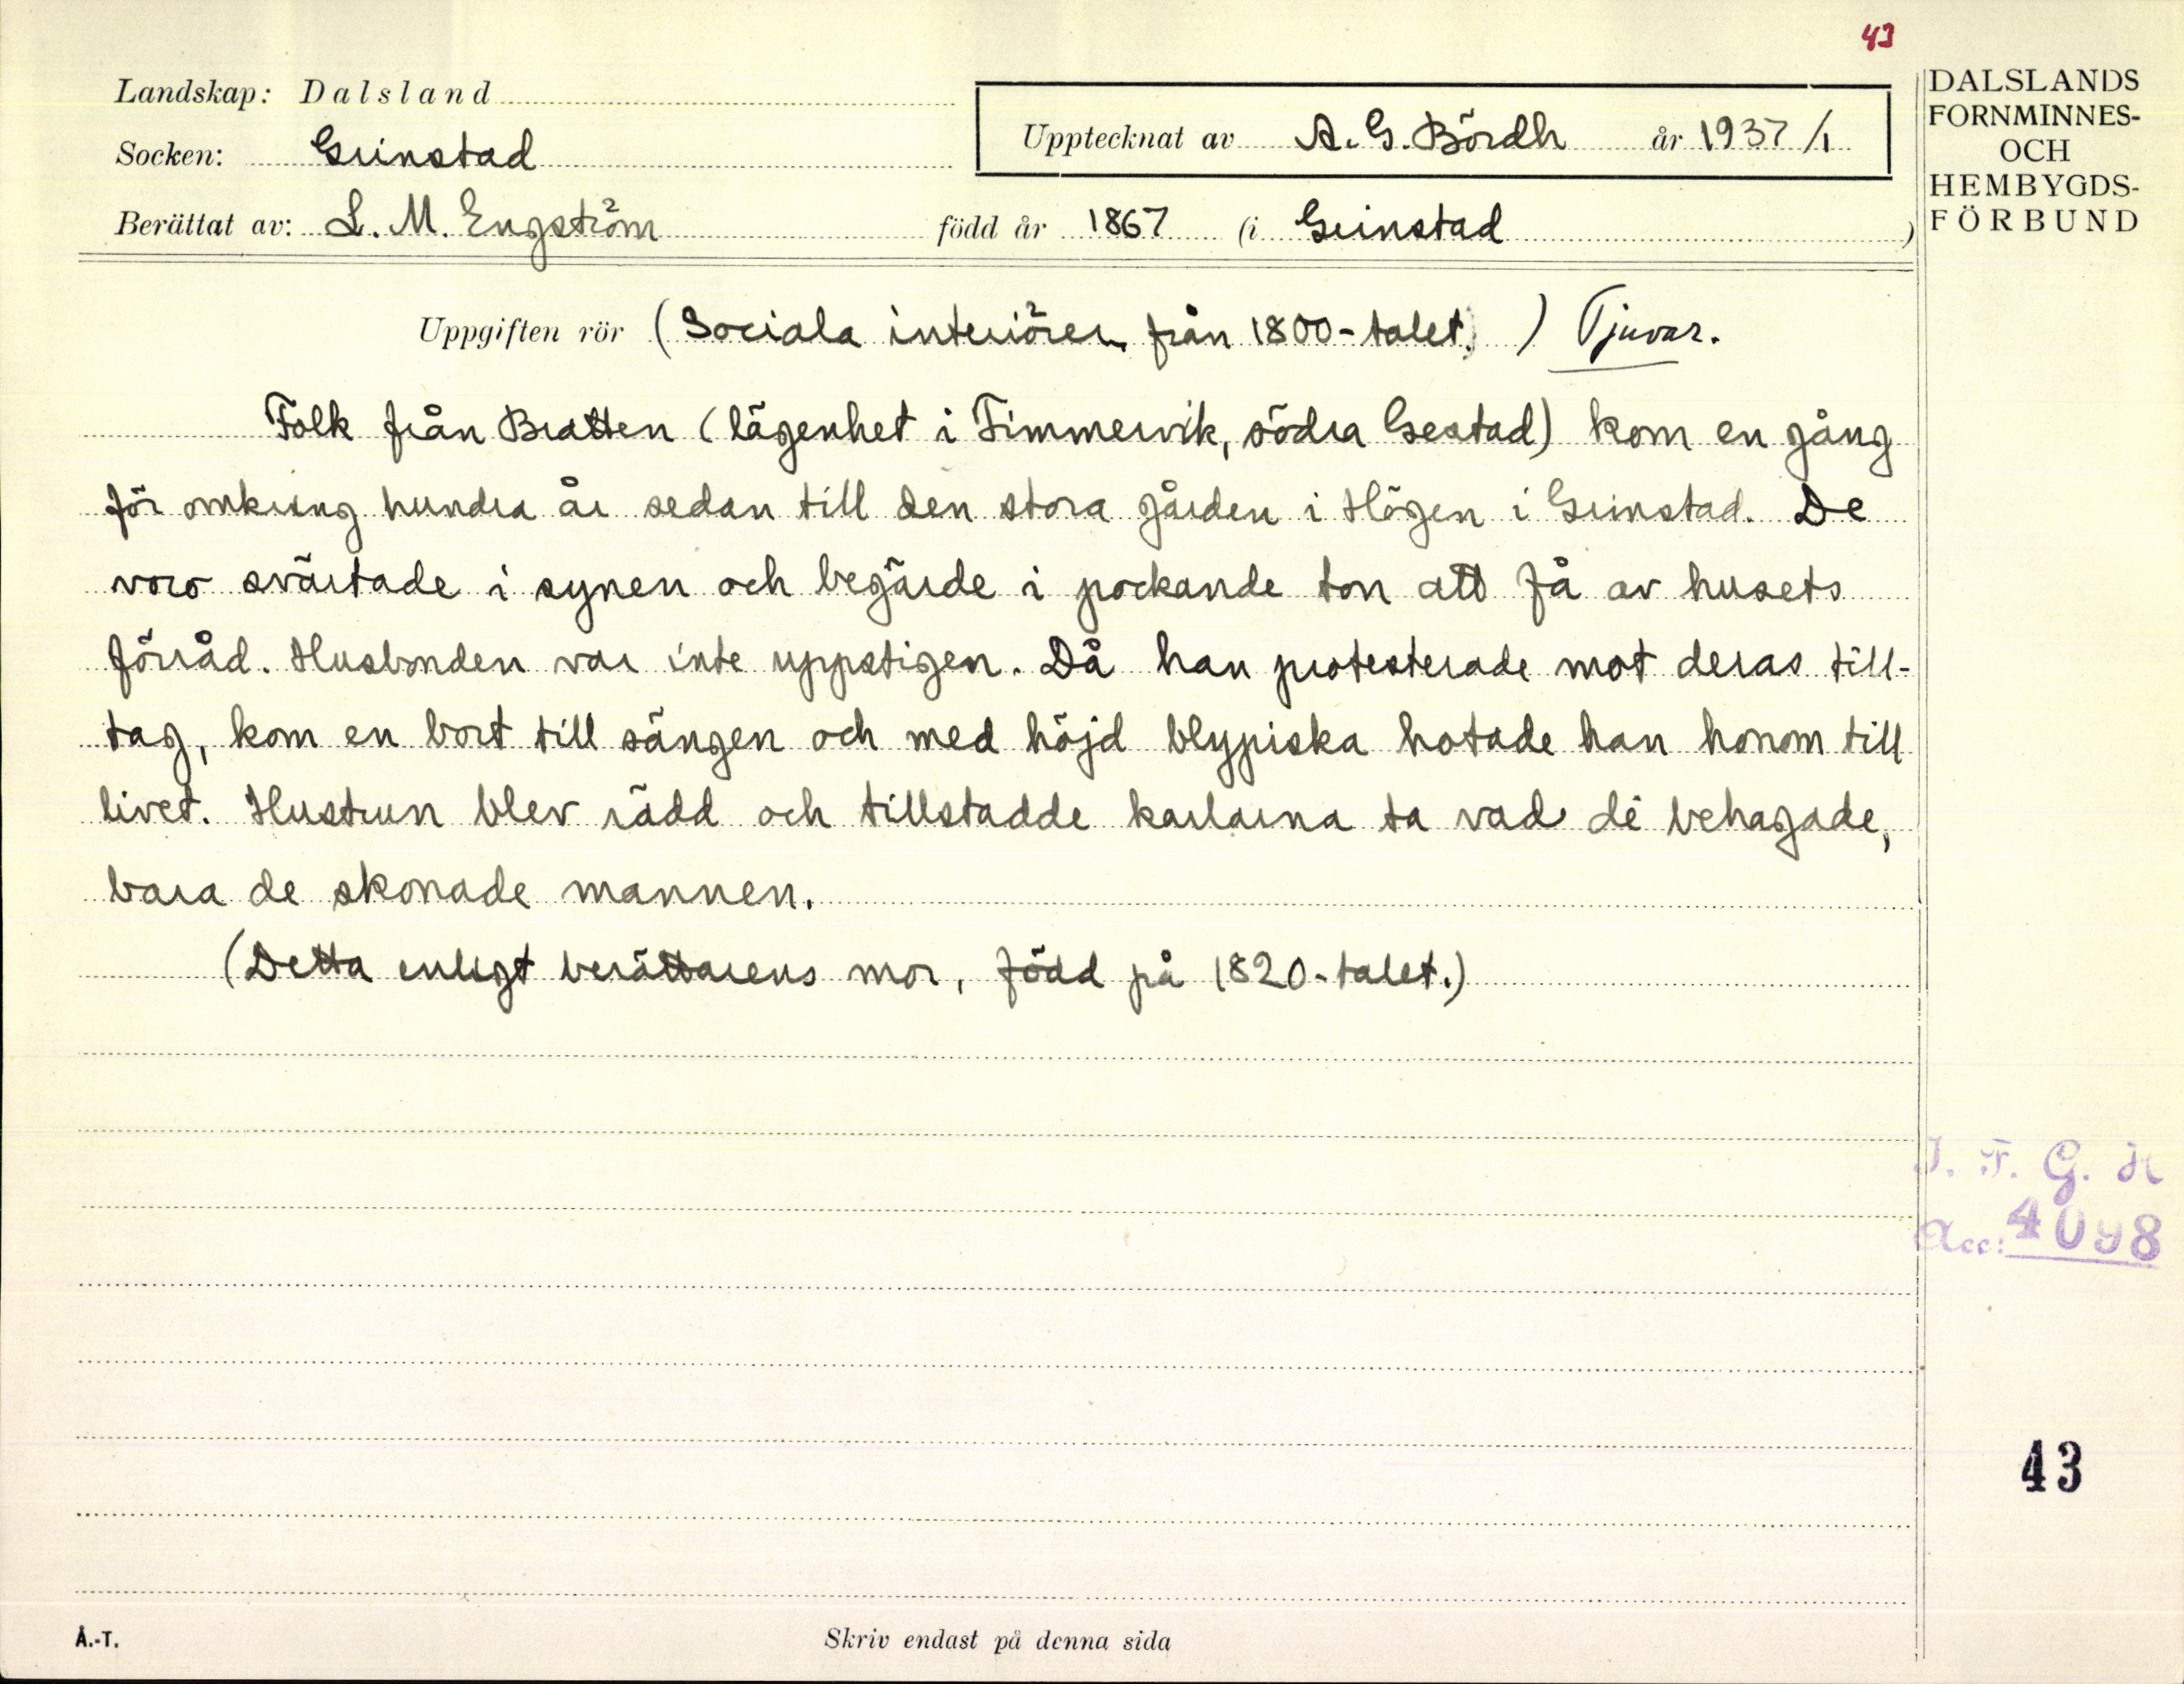 43
Landskap: Dalsland
Socken: Grinstad
Berättat av: L. M. Engström född år 1867 (i Grinstad)
Upptecknat av A. G. Bördh år 1937/1
DALSLANDS
FORNMINNES-
OCH
HEMBYGDS-
FÖRBUND
Uppgiften rör (Sociala interiörer från 1800-talet.) Tjuvar.
Folk från Bratten (lägenhet i Timmervik, södra Gestad) kom en gång
för omkring hundra år sedan till den stora gården i Högen i Grinstad. De
voro svärtade i synen och begärde i pockande ton att få av husets
förråd. Husbonden var inte uppstigen. Då han protesterade mot deras till-
tag, kom en bort till sängen och med höjd blypiska hotade han honom till
livet. Hustrun blev rädd och tillstadde karlarna ta vad de behagade,
bara de skonade mannen.
(Detta enligt berättarens mor, född på 1820-talet.)
I. F. G. H
Acc: 4098
43
Å.-T.
Skriv endast på denna sida